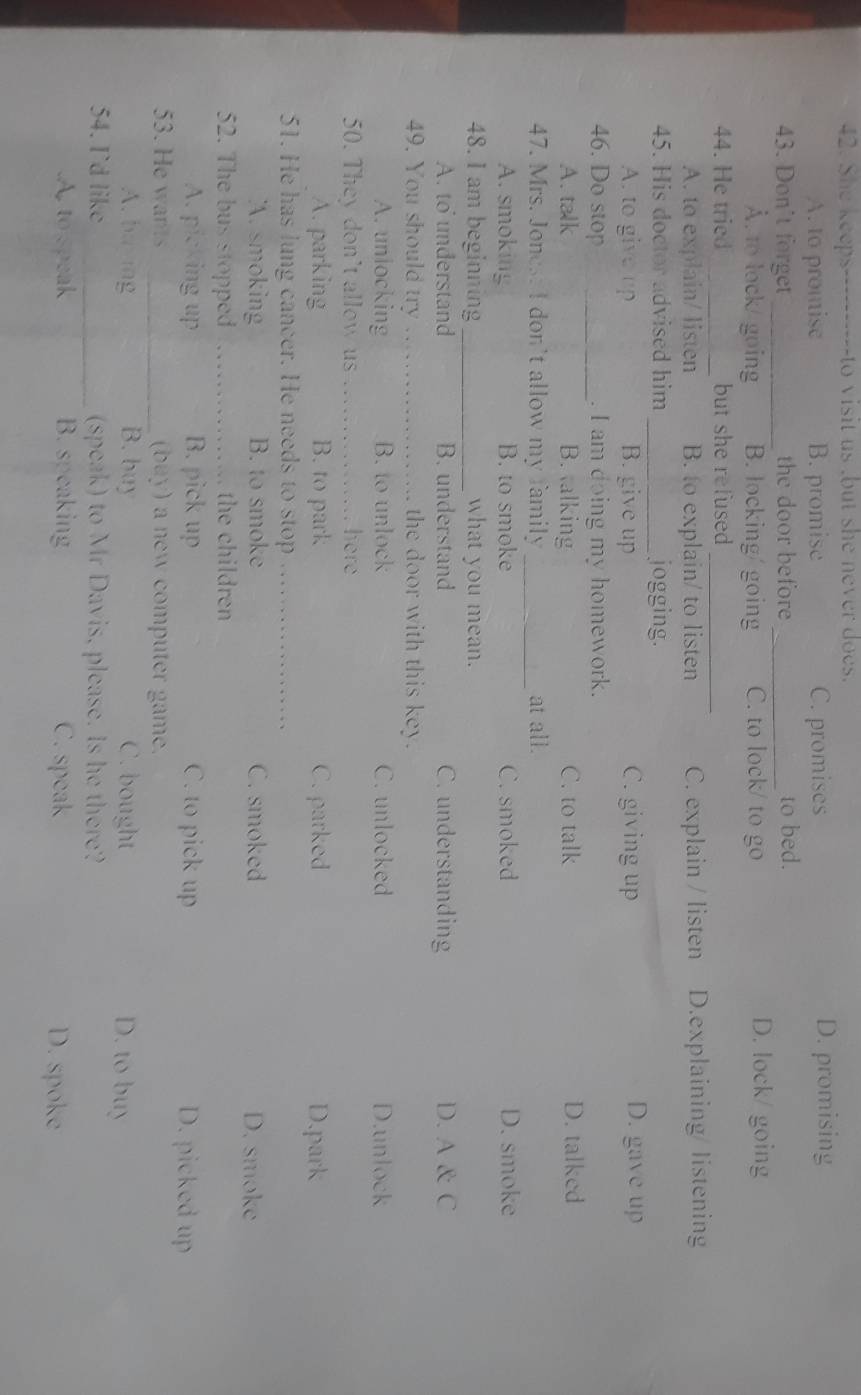 42. She keeps---------to visit us ,but she never does.
A. to promise B. promise C. promises D. promising
43. Don't forget __________ the door before __________ to bed.
A. to lock/ going B. locking/ going C. to lock/ to go D. lock/ going
44. He tried __________ but she refused __________
A. to explain/ listen B. to explain/ to listen C. explain / listen D.explaining/ listening
45. His doctor advised him __________ jogging.
A. to give up B. give up C. giving up D. gave up
46. Do stop __________. I am doing my homework.
A. talk B. talking C. to talk D. talked
47. Mrs. Jones: I don't allow my family __________ at all.
A. smoking B. to smoke C. smoked D. smoke
48. I am beginning __________ what you mean.
A. to understand B. understand C. understanding D. A & C
49. You should try .................. the door with this key.
A. unlocking B. to unlock C. unlocked D.unlock
50. They don't allow us .................. here
A. parking B. to park C. parked D.park
51. He has lung cancer. He needs to stop ..................
A. smoking B. to smoke C. smoked D. smoke
52. The bus stopped .................. the children
A. picking up B. pick up C. to pick up D. picked up
53. He wants __________ (buy) a new computer game.
A. buying B. buy C. bought D. to buy
54. I'd like __________ (speak) to Mr Davis, please. Is he there?
A. to speak B. speaking C. speak D. spoke